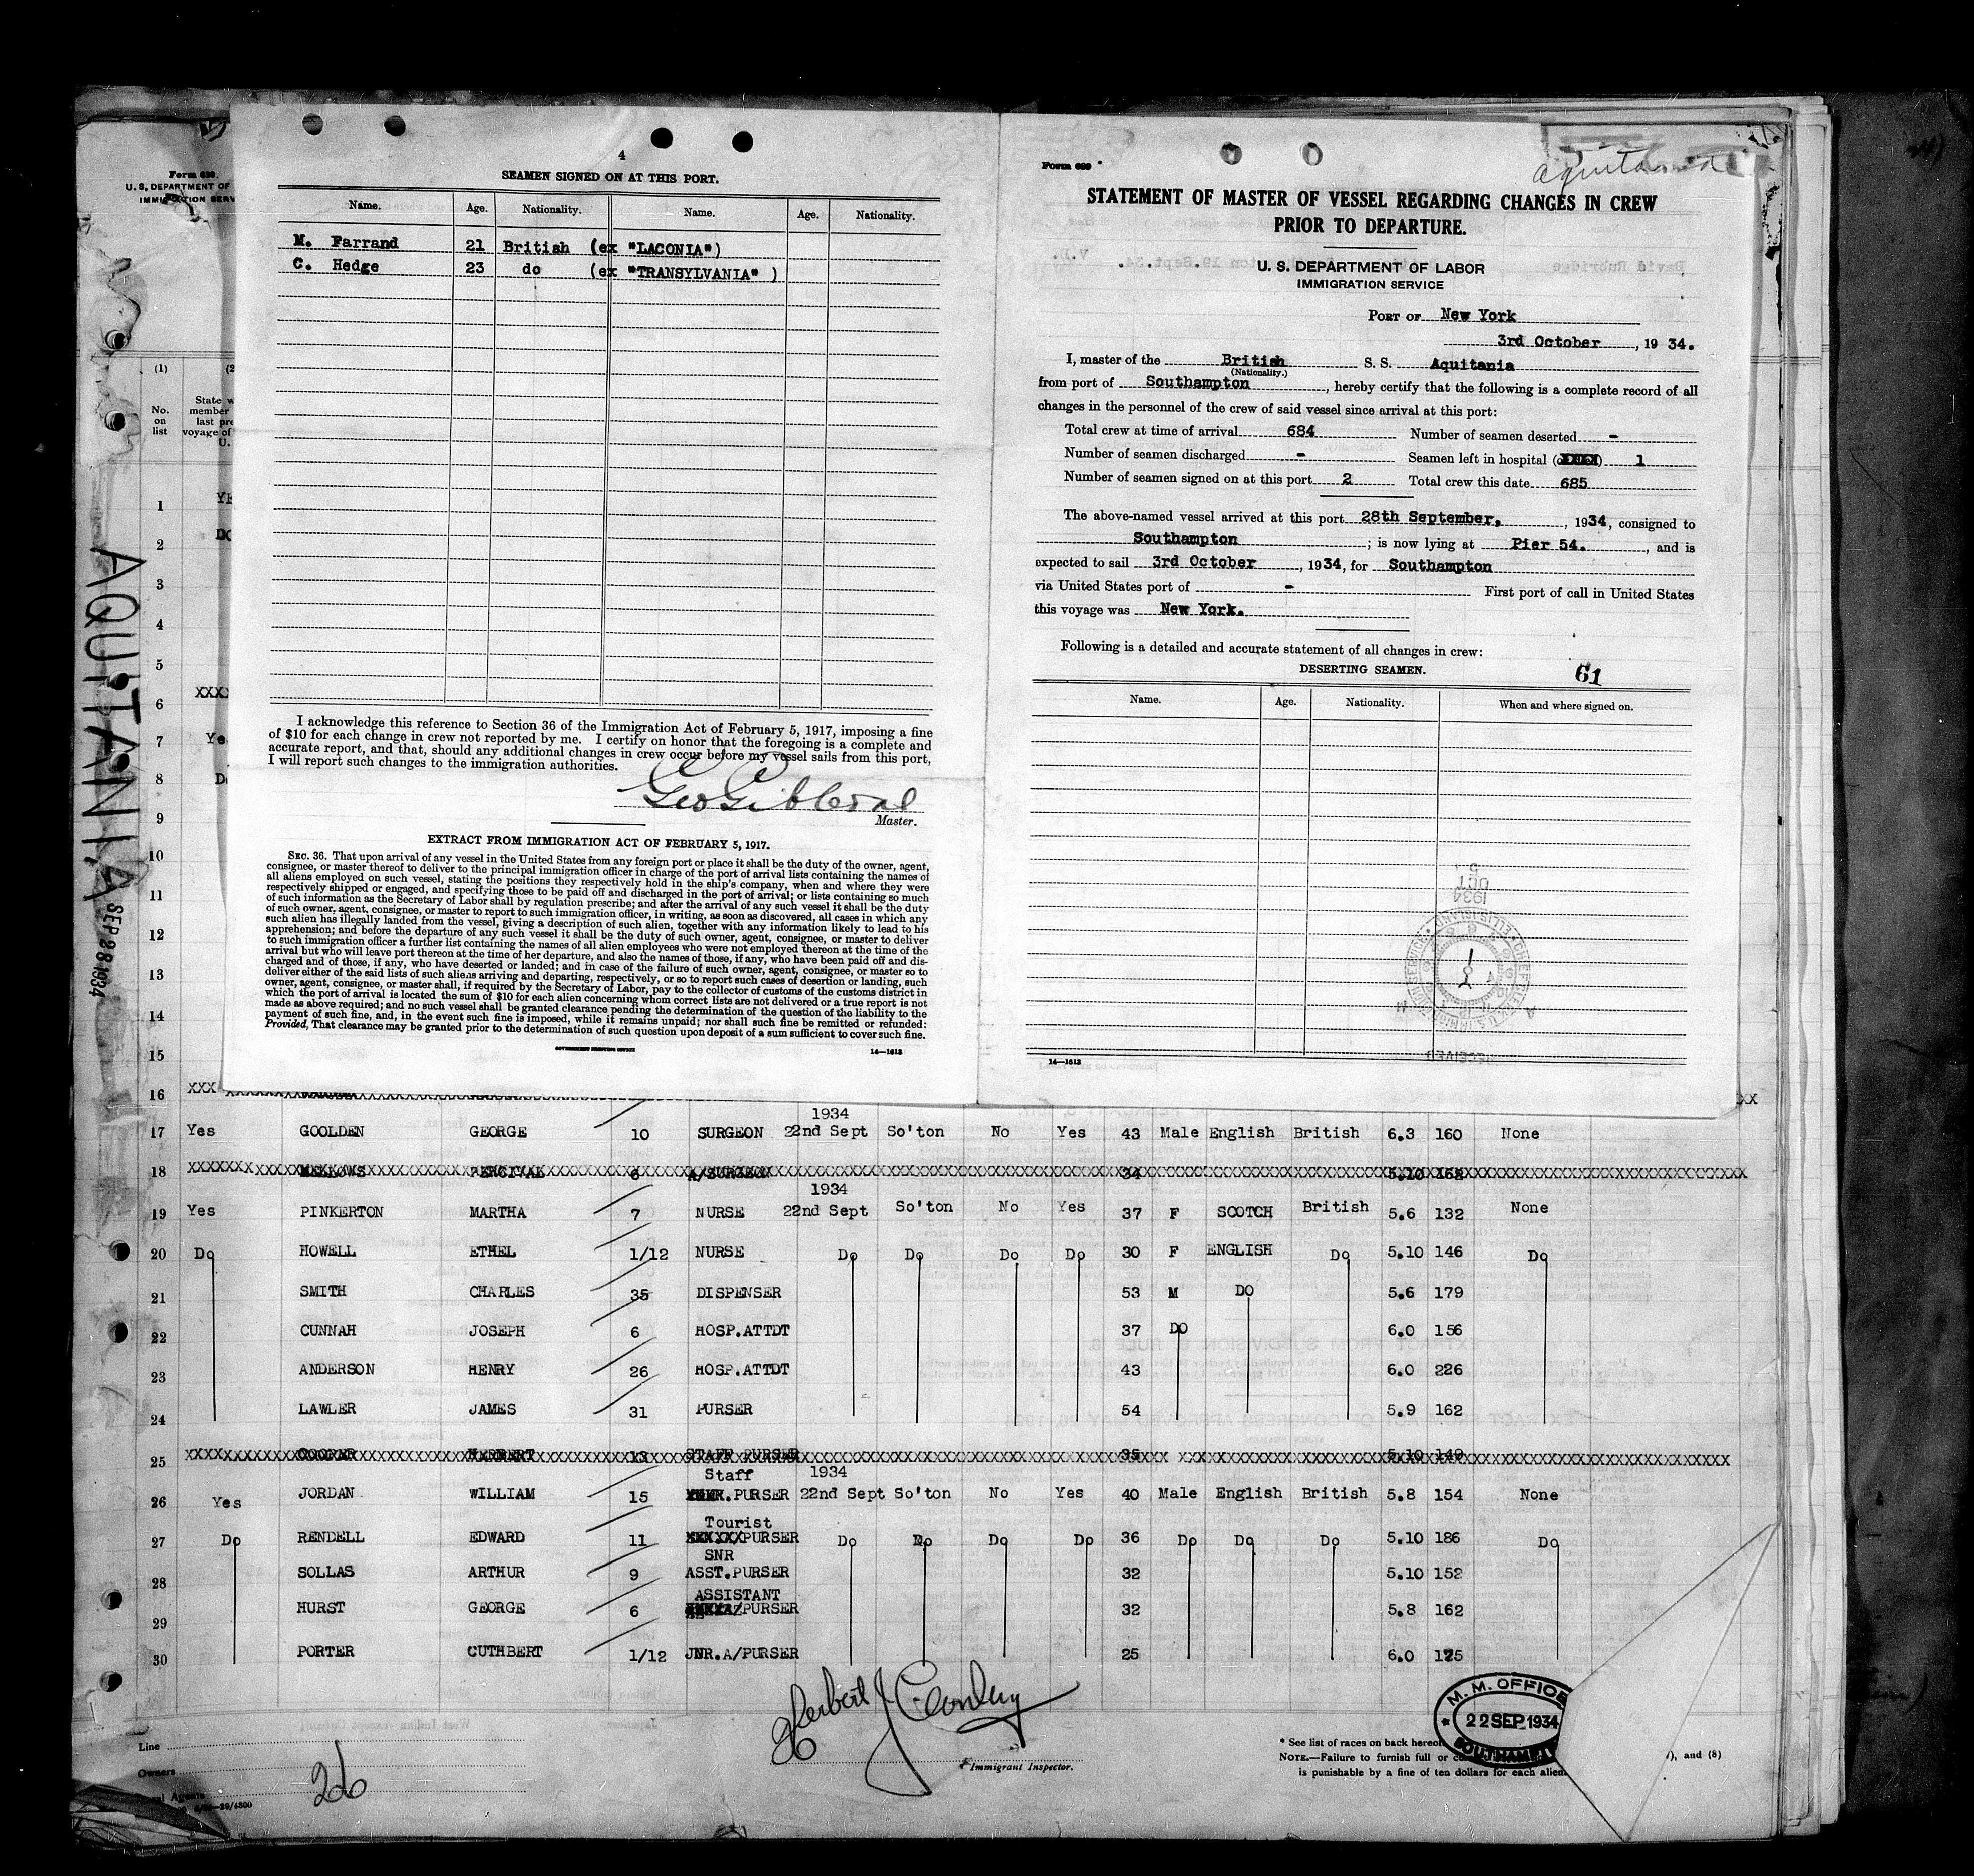 4
SEAMEN SIGNED ON AT THIS PORT.
Name. Age. Nationality. Name. Age. Nationality.
M. Farrand 21 British (ex "LACONIA")
C. Hedge 23 do (ex "TRANSYLVANIA" )
I acknowledge this reference to Section 36 of the Immigration Act of February 5, 1917, imposing a fine
of $10 for each change in crew not reported by me. I certify on honor that the foregoing is a complete and
accurate report, and that, should any additional changes in crew occur before my vessel sails from this port,
I will report such changes to the immigration authorities.
Master.
EXTRACT FROM IMMIGRATION ACT OF FEBRUARY 5, 1917.
SEC. 36. That upon arrival of any vessel in the United States from any foreign port or place it shall be the duty of the owner, agent,
consignee, or master thereof to deliver to the principal immigration officer in charge of the port of arrival lists containing the names of
all aliens employed on such vessel, stating the positions they respectively hold in the ship's company, when and where they were
respectively shipped or engaged, and specifying those to be paid off and discharged in the port of arrival; or lists containing so much
of such information as the Secretary of Labor shall by regulation prescribe; and after the arrival of any such vessel it shall be the duty
of such owner, agent, consignee, or master to report to such immigration officer, in writing, as soon as discovered, all cases in which any
such alien has illegally landed from the vessel, giving a description of such alien, together with any information likely to lead to his
apprehension; and before the departure of any such vessel it shall be the duty of such owner, agent, consignee, or master to deliver
to such immigration officer a further list containing the names of all alien employees who were not employed thereon at the time of the
arrival but who will leave port thereon at the time of her departure, and also the names of those, if any, who have been paid off and dis-
charged and of those, if any, who have deserted or landed; and in case of the failure of such owner, agent, consignee, or master so to
deliver either of the said lists of such aliens arriving and departing, respectively, or so to report such cases of desertion or landing, such
owner, agent, consignee, or master shall, if required by the Secretary of Labor, pay to the collector of customs of the customs district in
which the port of arrival is located the sum of $10 for each alien concerning whom correct lists are not delivered or a true report is not
made as above required; and no such vessel shall be granted clearance pending the determination of the question of the liability to the
payment of such fine, and, in the event such fine is imposed, while it remains unpaid; nor shall such fine be remitted or refunded:
Provided, That clearance may be granted prior to the determination of such question upon deposit of a sum sufficient to cover such fine.
GOVERNMENT PRINTING OFFICE 14—1613
Form 689
Aquitania
STATEMENT OF MASTER OF VESSEL REGARDING CHANGES IN CREW
PRIOR TO DEPARTURE.
U. S. DEPARTMENT OF LABOR
IMMIGRATION SERVICE
PORT OF New York
3rd October, 1934.
I, master of the British S. S. Aquitania
(Nationality.)
from port of Southampton, hereby certify that the following is a complete record of all
changes in the personnel of the crew of said vessel since arrival at this port:
Total crew at time of arrival 684 Number of seamen deserted -
Number of seamen discharged - Seamen left in hospital 1
Number of seamen signed on at this port 2 Total crew this date 685
The above-named vessel arrived at this port 28th September, 1934, consigned to
Southampton; is now lying at Pier 54., and is
expected to sail 3rd October, 1934, for Southampton
via United States port of - First port of call in United States
this voyage was New York.
Following is a detailed and accurate statement of all changes in crew:
DESERTING SEAMEN. 61
Name. Age. Nationality. When and where signed on.
14—1613
Form 689.
U. S. DEPARTMENT OF
(1)
No. on list
AQUITANIA SEP 28 1934
1
2
3
4
5
6
7
8
9
10
11
12
13
14
15
16
1934
17 Yes GOOLDEN GEORGE 10 SURGEON 22nd Sept So'ton No Yes 43 Male English British 6.3 160 None
18 MELLOWS PERCIVAL 6 A/SURGEON 34 5.10 162
1934
19 Yes PINKERTON MARTHA 7 NURSE 22nd Sept So'ton No Yes 37 F SCOTCH British 5.6 132 None
20 Do HOWELL ETHEL 1/12 NURSE Do Do Do Do 30 F ENGLISH Do 5.10 146 Do
21 SMITH CHARLES 35 DISPENSER 53 M DO 5.6 179
22 CUNNAH JOSEPH 6 HOSP.ATTDT 37 DO 6.0 156
23 ANDERSON HENRY 26 HOSP.ATTDT 43 6.0 226
24 LAWLER JAMES 31 PURSER 54 5.9 162
25 COOPER HERBERT 13 STAFF PURSER 35 5.10 149
Staff 1934
26 Yes JORDAN WILLIAM 15 PURSER 22nd Sept So'ton No Yes 40 Male English British 5.8 154 None
Tourist
27 Do RENDELL EDWARD 11 PURSER Do Do Do Do 36 Do Do Do 5.10 186 Do
SNR
28 SOLLAS ARTHUR 9 ASST.PURSER 32 5.10 152
ASSISTANT
29 HURST GEORGE 6 PURSER 32 5.8 162
30 PORTER CUTHBERT 1/12 JNR.A/PURSER 25 6.0 175
Immigrant Inspector.
Line
Owners
26
M. M. OFFICE
22 SEP 1934
* See list of races on back hereof
NOTE.—Failure to furnish full or , and (8)
is punishable by a fine of ten dollars for each alien